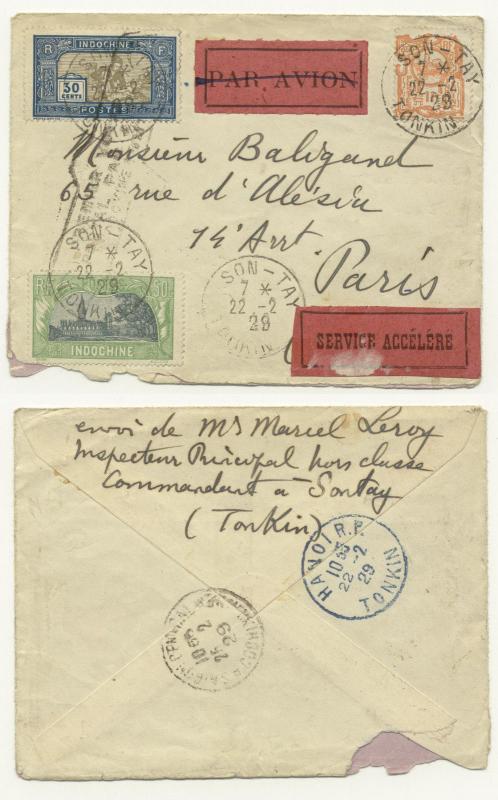 R INDOCHINE F
30
CENTS
POSTES
PAR AVION
SON-TAY
7 *
22 -2
29
TONKIN
Monsieur Baligand
65 rue d'Alésia
14e Arrt
Paris
SON-TAY
7 *
22 -2
29
TONKIN
SON-TAY
7 *
22 -2
29
TONKIN
INDOCHINE
SERVICE ACCÉLÉRÉ
envoi de Mr Marcel Leroy
Inspecteur Principal hors classe
Commandant à Sontay
(Tonkin)
HANOI R.P.
22 -2
29
TONKIN
25
2
29